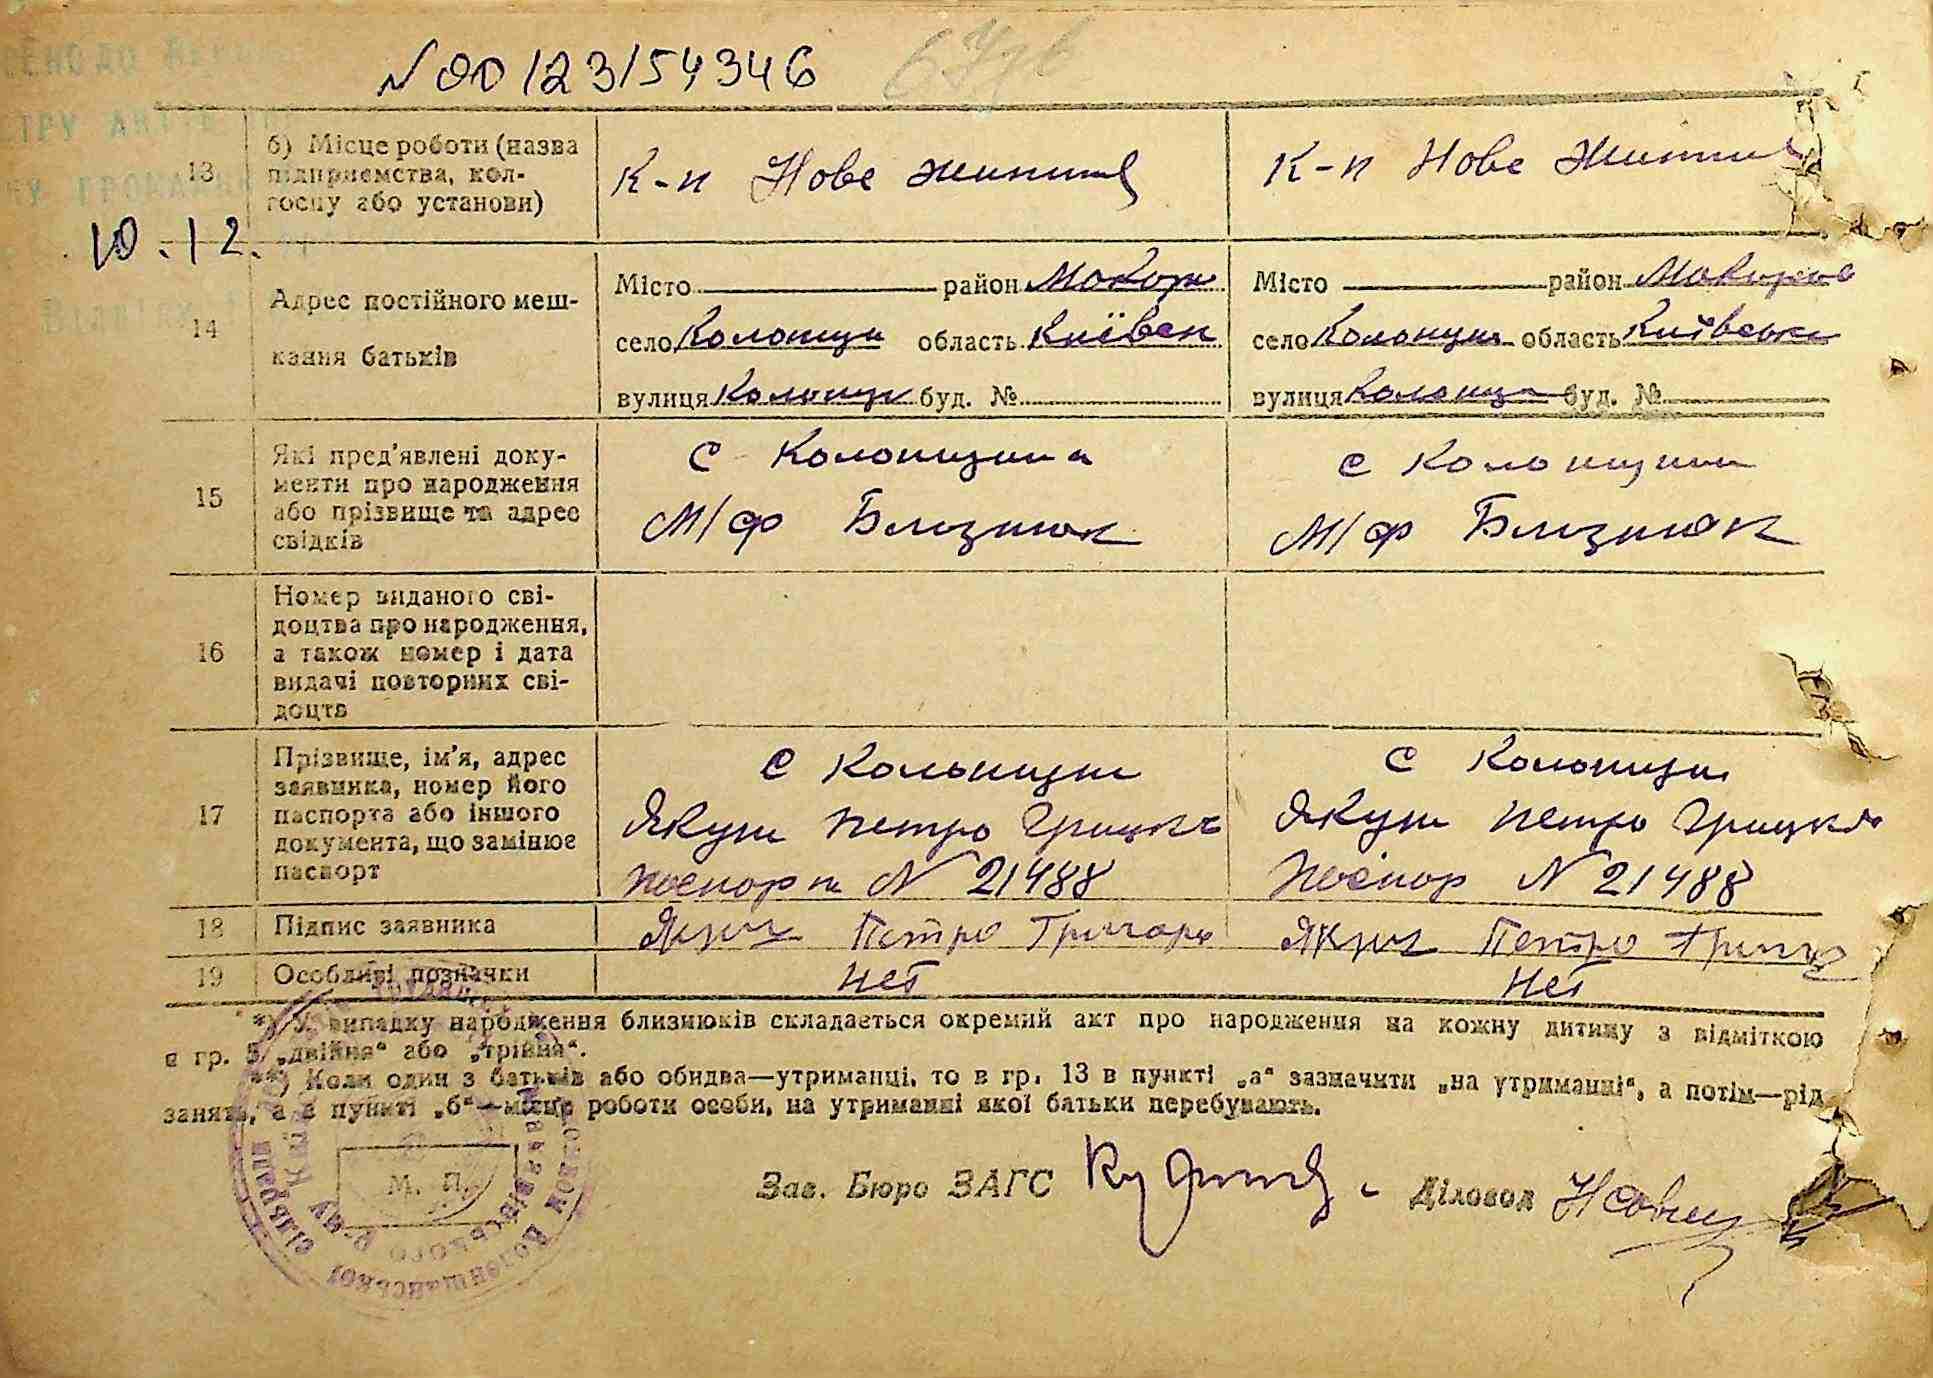 N 00123154346
13
б) Місце роботи (назва підприємства, колгоспу або установи)
К-п Нове життя
К-п Нове життя
10.12.
14
Адрес постійного мешкання батьків
Місто район Макар
село область Київськ
вулиця буд. №
Місто район Макарів
село область Київська
вулиця буд. №
15
Які пред'явлені документи про народження або прізвище та адрес свідків
с Колонщина
М/ф Близнюк
с Колонщина
М/ф Близнюк
16
Номер виданого свідоцтва про народження, а також номер і дата видачі повторних свідоцтв
17
Прізвище, ім'я, адрес заявника, номер його паспорта або іншого документа, що замінює паспорт
с Колонщини
Якуш Петро Грицьк
Паспорт N 21488
с Колонщини
Якуш Петро Грицьк
Паспор N 21488
18
Підпис заявника
Якуш Петро Григорь
Якуш Петро
19
Особливі позначки
Нет
Нет
*) У випадку народження близнюків складається окремий акт про народження на кожну дитину з відміткою
в гр. 5 „двійня“ або „трійня“.
**) Коли один з батьків або обидва—утриманці, то в гр. 13 в пункті „а“ зазначити „на утриманні“, а потім—рід
занять, а в пункті „б“—місце роботи особи, на утриманні якої батьки перебувають.
М. П.
Зав. Бюро ЗАГС
Діловод